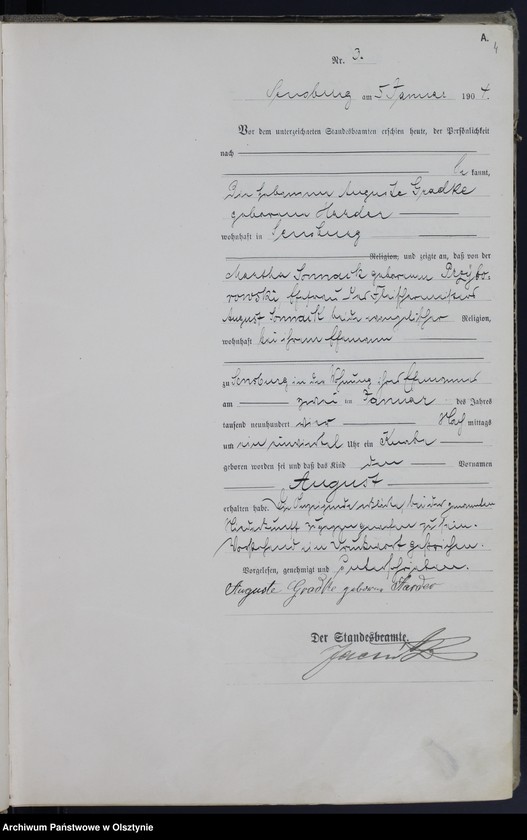 A.
4
Nr. 3.
Sensburg am 5 Januar 1904.
Vor dem unterzeichneten Standesbeamten erschien heute, der Persönlichkeit
nach
be kannt,
Die Hebamme Auguste Gradtke
geborene Harder
wohnhaft in Sensburg
Religion, und zeigte an, daß von der
Martha Sonnack geborenen Przybo-
rowski Ehefrau des Fleischermeisters
August Sonnack beide evangelischer Religion,
wohnhaft bei ihrem Ehemann
zu Sensburg in der Wohnung ihres Ehemannes
am zwei ten Januar des Jahres
tausend neunhundert vier Nach mittags
um ein einviertel Uhr ein Knabe
geboren worden sei und daß das Kind den Vornamen
August
erhalten habe. Die Anzeigende erklärte, bei der genannten
Niederkunft zugegen gewesen zu sein.
Vorstehend ein Druckwort gestrichen.
Vorgelesen, genehmigt und unterschrieben.
Auguste Gradtke geborene Harder
Der Standesbeamte.
Archiwum Państwowe w Olsztynie